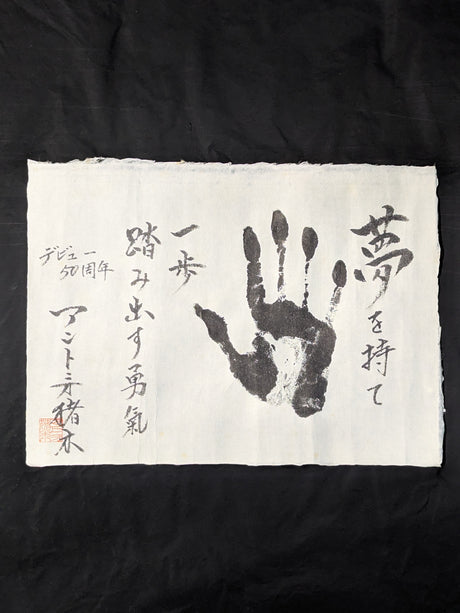 夢を持て
一歩
踏み出す勇氣
デビュー
50周年
アントニオ猪木